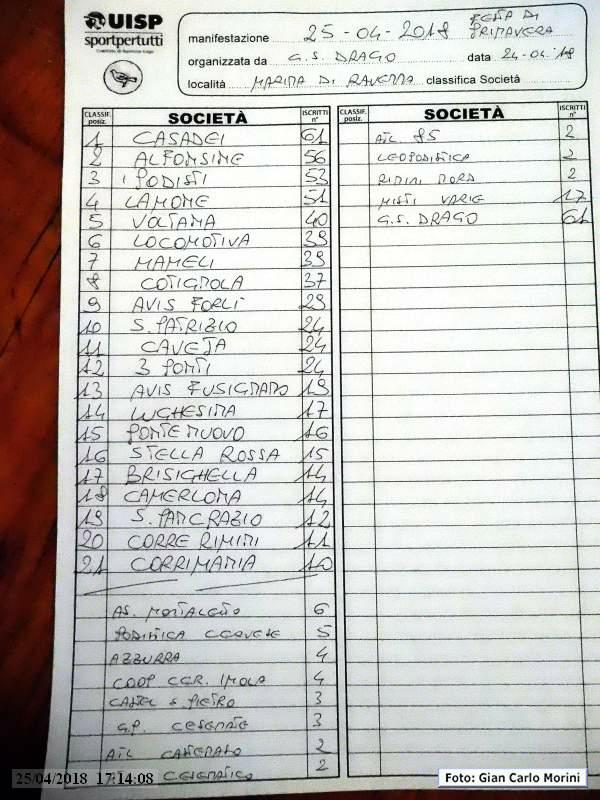 UISP
sportpertutti
manifestazione 25-04-2018 FESTA DI PRIMAVERA
organizzata da G.S. DRAGO data 24-04-18
località MARINA DI RAVENNA classifica Società
CLASSIF. posiz. SOCIETÀ ISCRITTI n°
1 CASADEI 61
2 ALFONSINE 56
3 I PODISTI 53
4 LAMONE 51
5 VOLTANA 40
6 LOCOMOTIVA 39
7 MAMELI 39
8 COTIGNOLA 37
9 AVIS FORLÌ 29
10 S. PATRIZIO 24
11 CAVEJA 24
12 3 PONTI 24
13 AVIS FUSIGNANO 19
14 LUGHESINA 17
15 PONTENUOVO 16
16 STELLA ROSSA 15
17 BRISIGHELLA 14
18 CAMERLONA 14
19 S. PANCRAZIO 12
20 CORRE RIMINI 11
21 CORRIMANIA 10
AS. MONTALETTO 6
PODISTICA CERVESE 5
AZZURRA 4
COOP CER. IMOLA 4
CASTEL S. PIETRO 3
G.P. CESENATE 3
ATL 2
2
CLASSIF. posiz. SOCIETÀ ISCRITTI n°
ATL 85 2
LEOPODISTICA 2
RIMINI NORD 2
MISTI VARIE 17
G.S. DRAGO 61
25/04/2018 17:14:08
Foto: Gian Carlo Morini